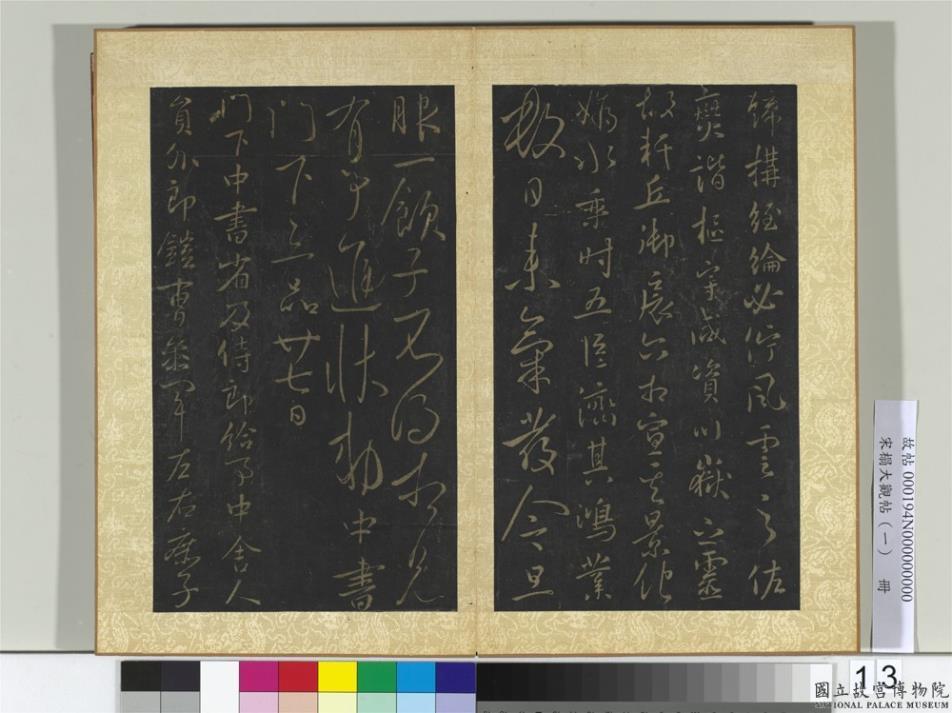 締構經綸必佇風雲之佐
爕諧樞宰咸資川嶽之靈
故軒丘御扆六相宣其景化
媯水乘時五臣濟其鴻業
數日来氣發今旦
眼一顧子不得相見
有事進狀勑中書
門下三品廿七日
門下中書省及侍郎給事中舍人
員外郎鎧曹參軍左右庶子
故帖 000194N000000000
宋搨大觀帖(一) 冊
13
國立故宮博物院
NATIONAL PALACE MUSEUM